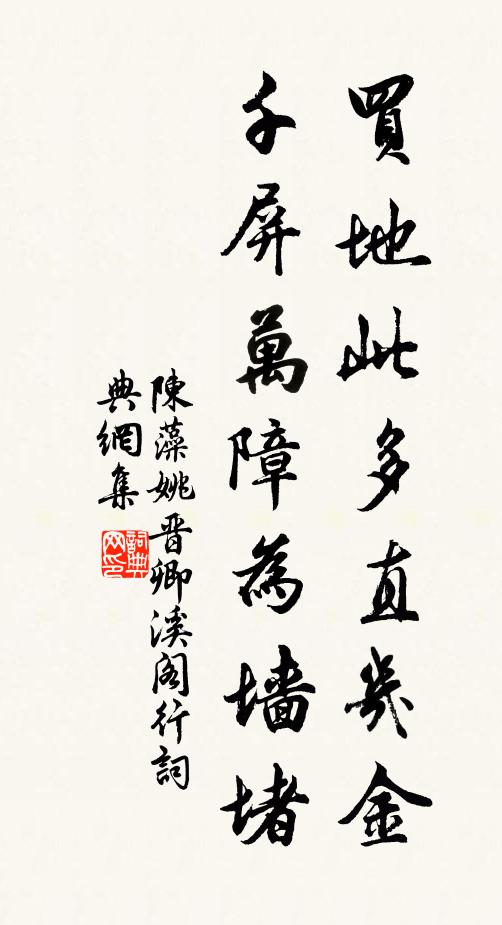 買地此多直幾金
千屏萬障為墙堵
陳藻姚晋卿溪阁行詞
典網集
詞典
网印